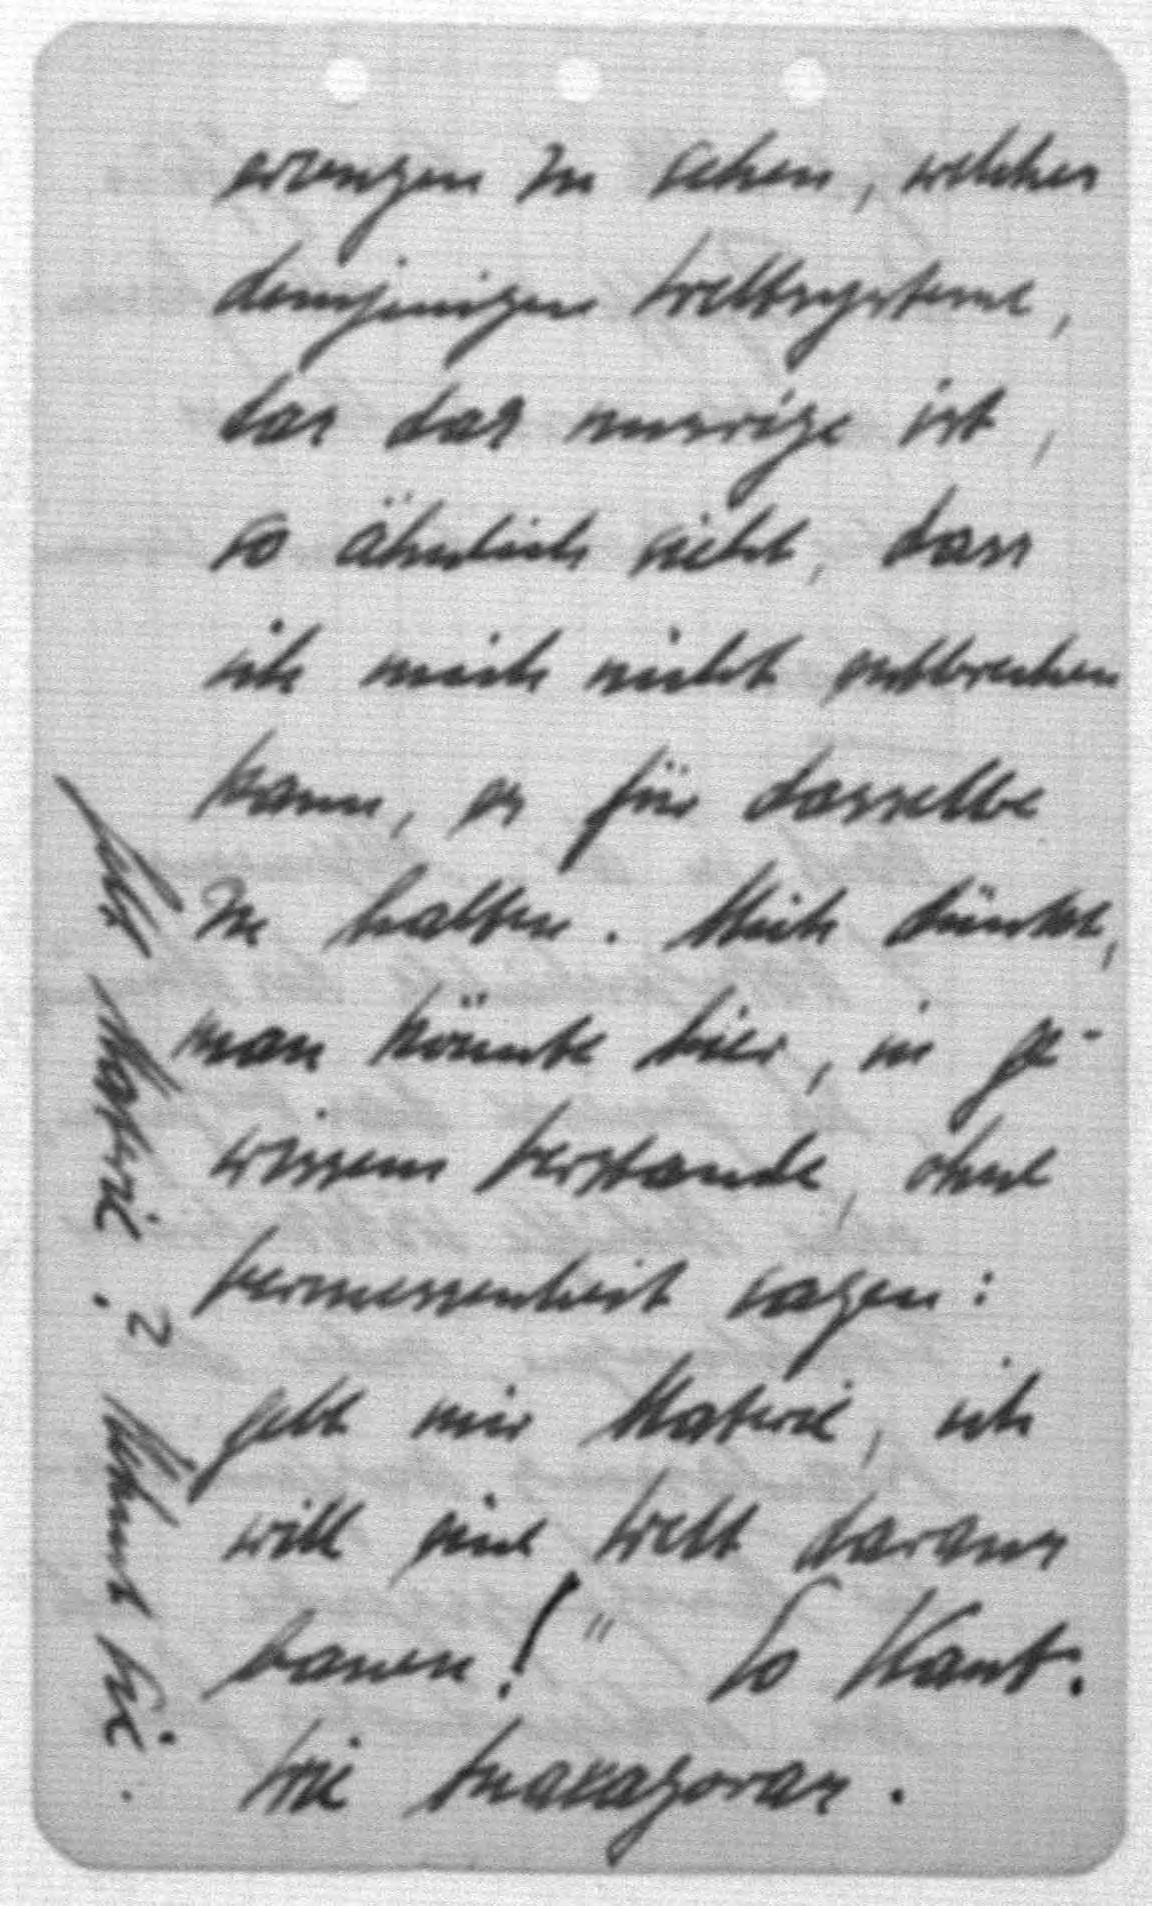 erzeugen zu sehen, welches
demjenigen Weltsysteme,
das das unsrige ist,
so ähnlich sieht, dass
ich mich nicht entbrechen
kann, es für dasselbe
zu halten. Mich dünkt,
man könnte hier, in ge-
wissem Verstande, ohne
Vermessenheit sagen:
gebt mir Materie, ich
will eine Welt daraus
bauen!" So Kant.
Wie Anaxagoras.
Materie ?